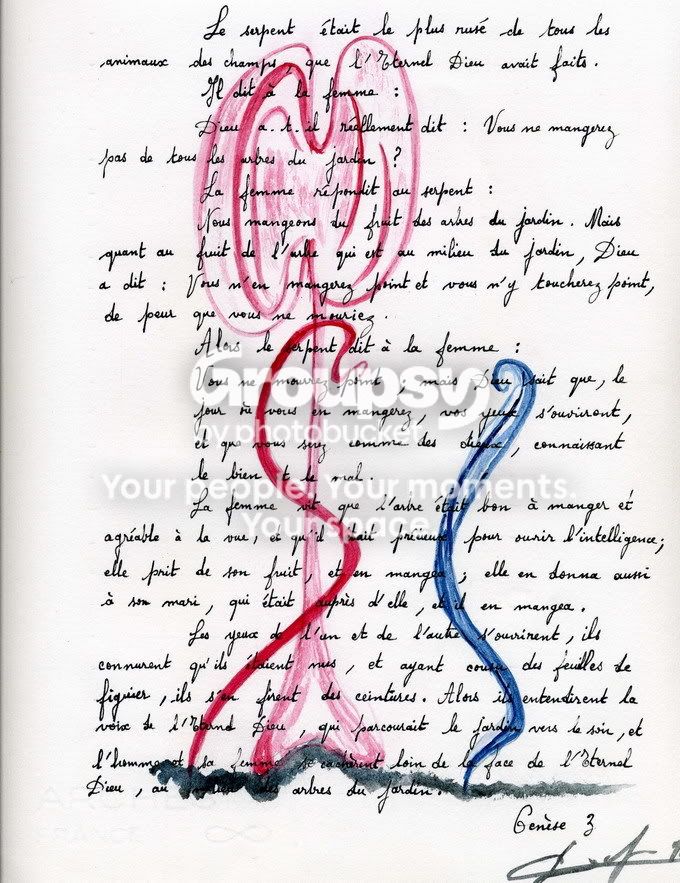 Le serpent était le plus rusé de tous les
animaux des champs, que l'Eternel Dieu avait faits.
Il dit à la femme :
Dieu a.t.il réellement dit : Vous ne mangerez
pas de tous les arbres du jardin ?
La femme répondit au serpent :
Nous mangeons du fruit des arbres du jardin. Mais
quant au fruit de l'arbre qui est au milieu du jardin, Dieu
a dit : Vous n'en mangerez point et vous n'y toucherez point,
de peur que vous ne mouriez.
Alors le serpent dit à la femme :
Vous ne mourrez point ; mais Dieu sait que, le
jour où vous en mangerez, vos yeux s'ouvriront,
et que vous serez comme des dieux, connaissant
le bien et le mal.
La femme vit que l'arbre était bon à manger et
agréable à la vue, et qu'il était précieux pour ouvrir l'intelligence ;
elle prit de son fruit, et en mangea ; elle en donna aussi
à son mari, qui était auprès d'elle, et il en mangea.
Les yeux de l'un et de l'autre s'ouvrirent, ils
connurent qu'ils étaient nus, et ayant cousu des feuilles de
figuier, ils s'en firent des ceintures. Alors ils entendirent la
voix de l'Eternel Dieu, qui parcourait le jardin vers le soir, et
l'homme et sa femme se cachèrent loin de la face de l'Eternel
Dieu, au milieu des arbres du jardin.
Genèse 3
Groupsy
by photobucket
Your people. Your moments.
Your space.
FRANCE